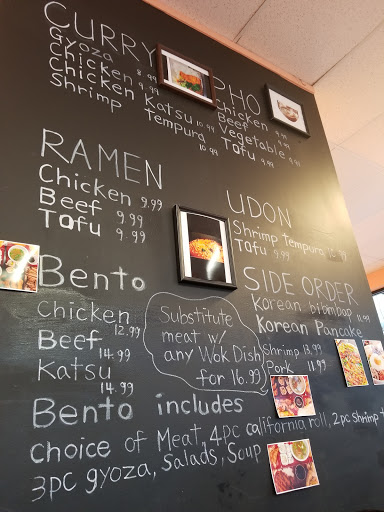 CURRY
Gyoza 8.99
Chicken 9.99
Chicken Katsu 10.99
Shrimp tempura 10.99
PHO
Chicken 9.99
Beef 9.99
Vegetable 9.99
Tofu 9.99
RAMEN
Chicken 9.99
Beef 9.99
Tofu 9.99
UDON
Shrimp Tempura
Tofu 9.99
Bento
Chicken 12.99
Beef 14.99
Katsu 14.99
Substitute
meat w/
any Wok Dish
for 16.99
SIDE ORDER
Korean bibmbap 11.99
Korean Pancake
Shrimp 13.99
Pork 11.99
Bento includes
choice of Meat, 4pc california roll, 2pc shrimp
3pc gyoza, Salads, Soup